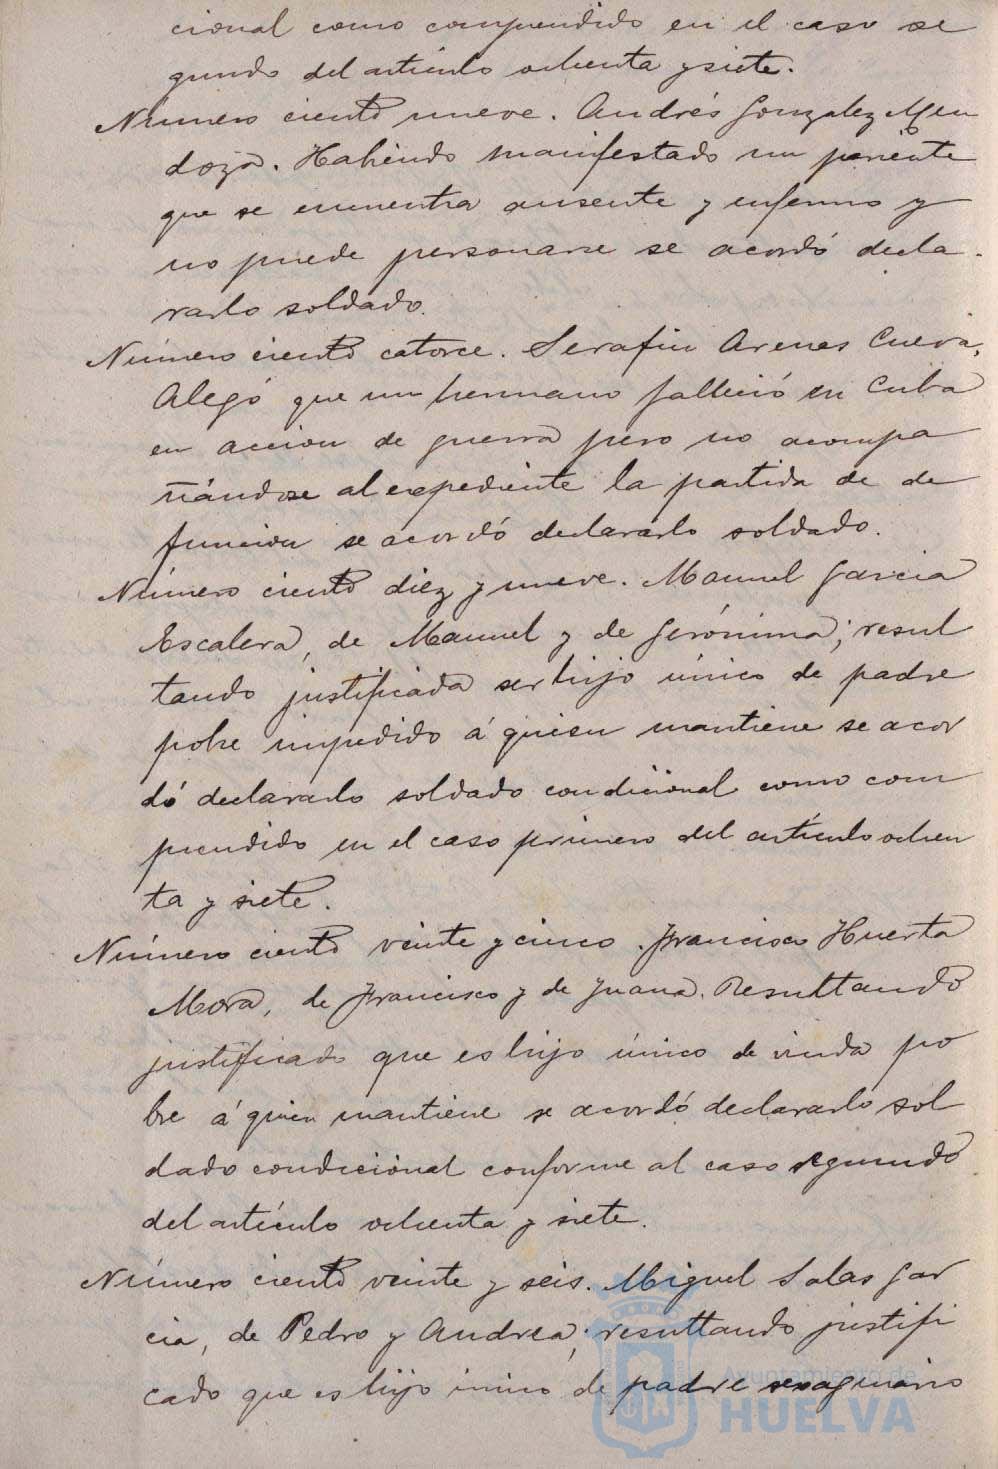 cional como comprendido en el caso se
gundo del artículo ochenta y siete.
Número ciento nueve. Andrés Gonzalez Men
doza. Habiendo manifestado un pariente
que se encuentra ausente y enfermo y
no puede personarse se acordó decla-
rarlo soldado.
Número ciento catorce. Serafin Arenes Cueva,
Alegó que un hermano falleció en Cuba
en accion de guerra pero no acompa
ñándose al expediente la partida de de
funcion se acordó declararlo soldado.
Número ciento diez y nueve. Manuel Garcia
Escalera, de Manuel y de Gerónima; resul
tando justificada ser hijo único de padre
pobre impedido á quien mantiene se acor
dó declararlo soldado condicional como com
prendido en el caso primero del artículo ochen
ta y siete.
Número ciento veinte y cinco. Francisco Huerta
Mora, de Francisco y de Juana. Resultando
justificado que es hijo único de viuda po
bre á quien mantiene se acordó declararlo sol
dado condicional conforme al caso segundo
del artículo ochenta y siete.
Número ciento veinte y seis. Miguel Salas Gar
cia, de Pedro y Andrea; resultando justifi
cado que es hijo único de padre sexagenario
Ayuntamiento de
HUELVA